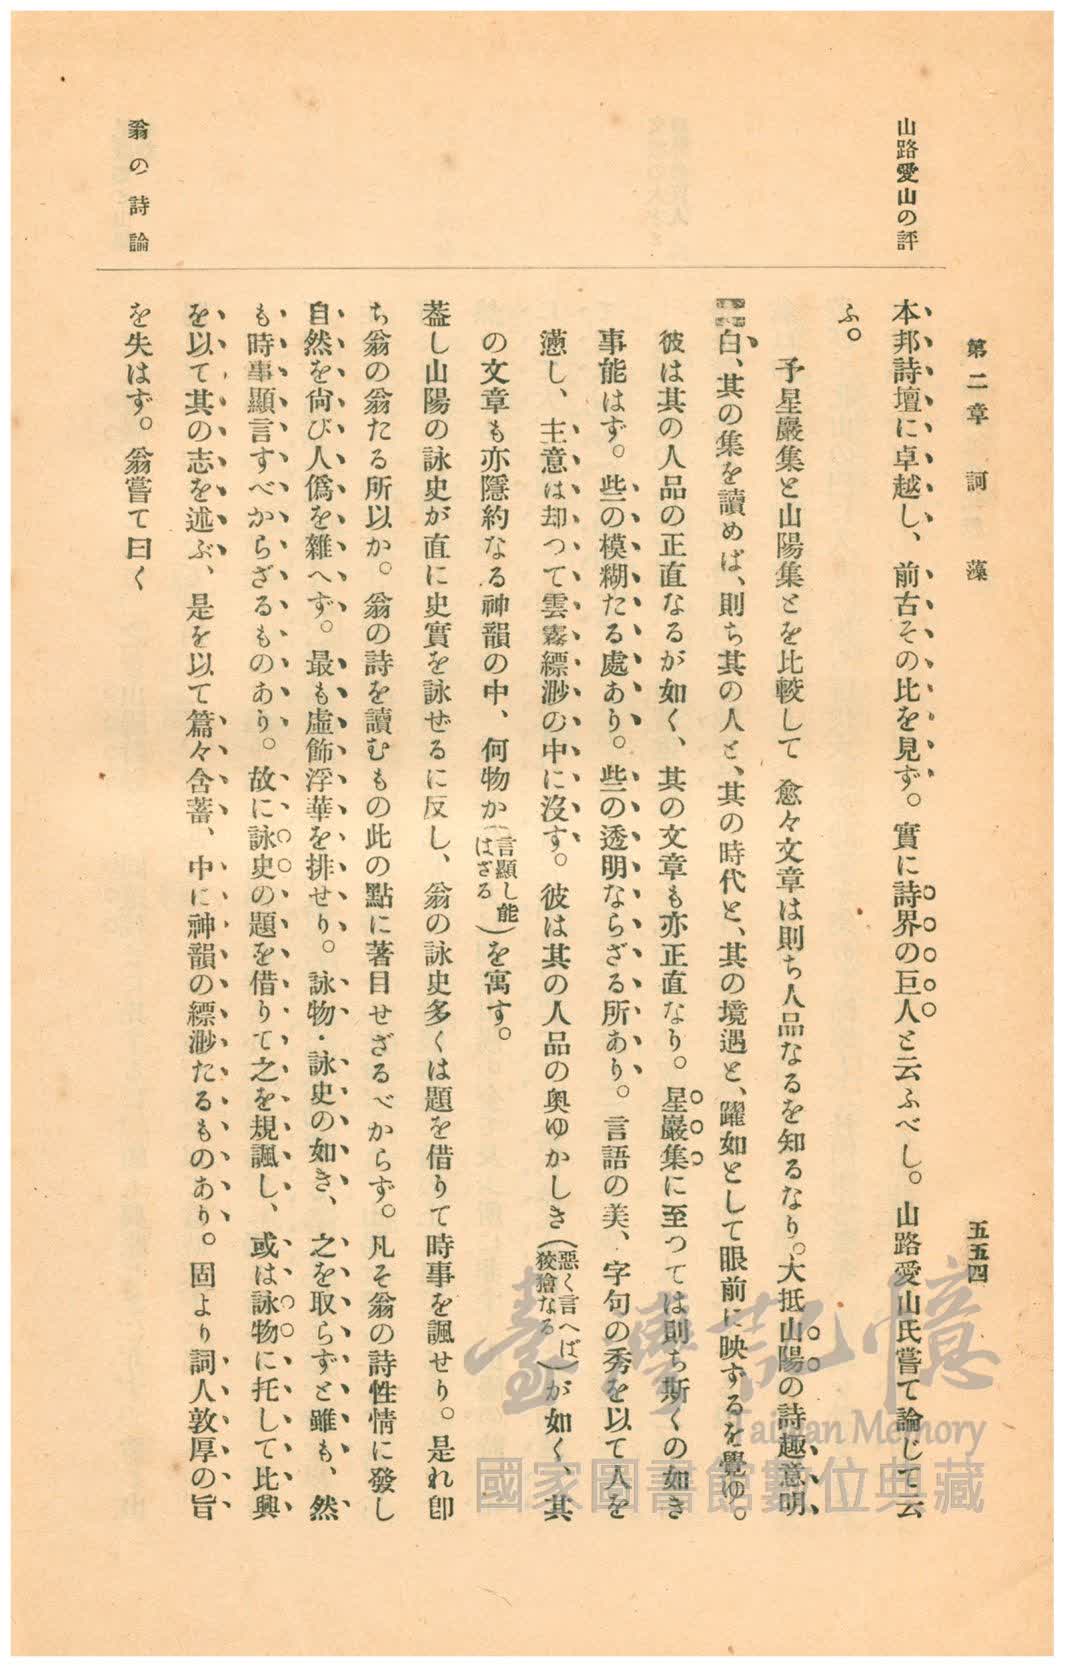 第二章 詞藻 五五四
山路愛山の評
本邦詩壇に卓越し、前古その比を見ず。實に詩界の巨人と云ふべし。山路愛山氏嘗て論じて云
ふ。
予星巖集と山陽集とを比較して 愈々文章は則ち人品なるを知るなり。大抵山陽の詩趣意明
白、其の集を讀めば、則ち其の人と、其の時代と、其の境遇と、躍如として眼前に映ずるを覺ゆ。
彼は其の人品の正直なるが如く、其の文章も亦正直なり。星巖集に至つては則ち斯くの如き
事能はず。些の模糊たる處あり。些の透明ならざる所あり。言語の美、字句の秀を以て人を
懣し、主意は却つて雲霧縹渺の中に沒す。彼は其の人品の奧ゆかしき(惡く言へば狡獪なる)が如く、其
の文章も亦隱約なる神韻の中、何物か(言顯し能はざる)を寓す。
蓋し山陽の詠史が直に史實を詠ぜるに反し、翁の詠史多くは題を借りて時事を諷せり。是れ卽
ち翁の翁たる所以か。翁の詩を讀むもの此の點に著目せざるべからず。凡そ翁の詩性情に發し
自然を尙び人僞を雜へず。最も虛飾浮華を排せり。詠物・詠史の如き、之を取らずと雖も、然
も時事顯言すべからざるものあり。故に詠史の題を借りて之を規諷し、或は詠物に托して比興
を以て其の志を述ぶ、是を以て篇々含蓄、中に神韻の縹渺たるものあり。固より詞人敦厚の旨
を失はず。翁嘗て曰く
翁の詩論
臺灣記憶
Taiwan Memory
國家圖書館數位典藏